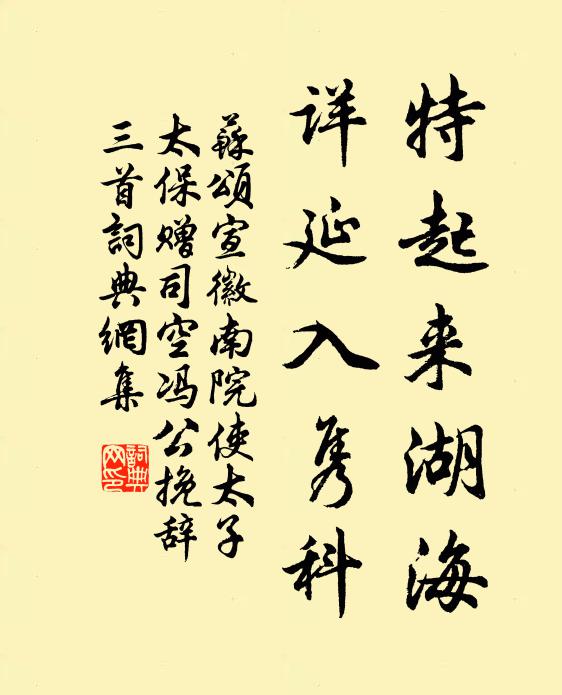 特起来湖海
详延入隽科
蘇頌宣徽南院使太子
太保赠司空冯公挽辞
三首詞典網集
詞典
网印